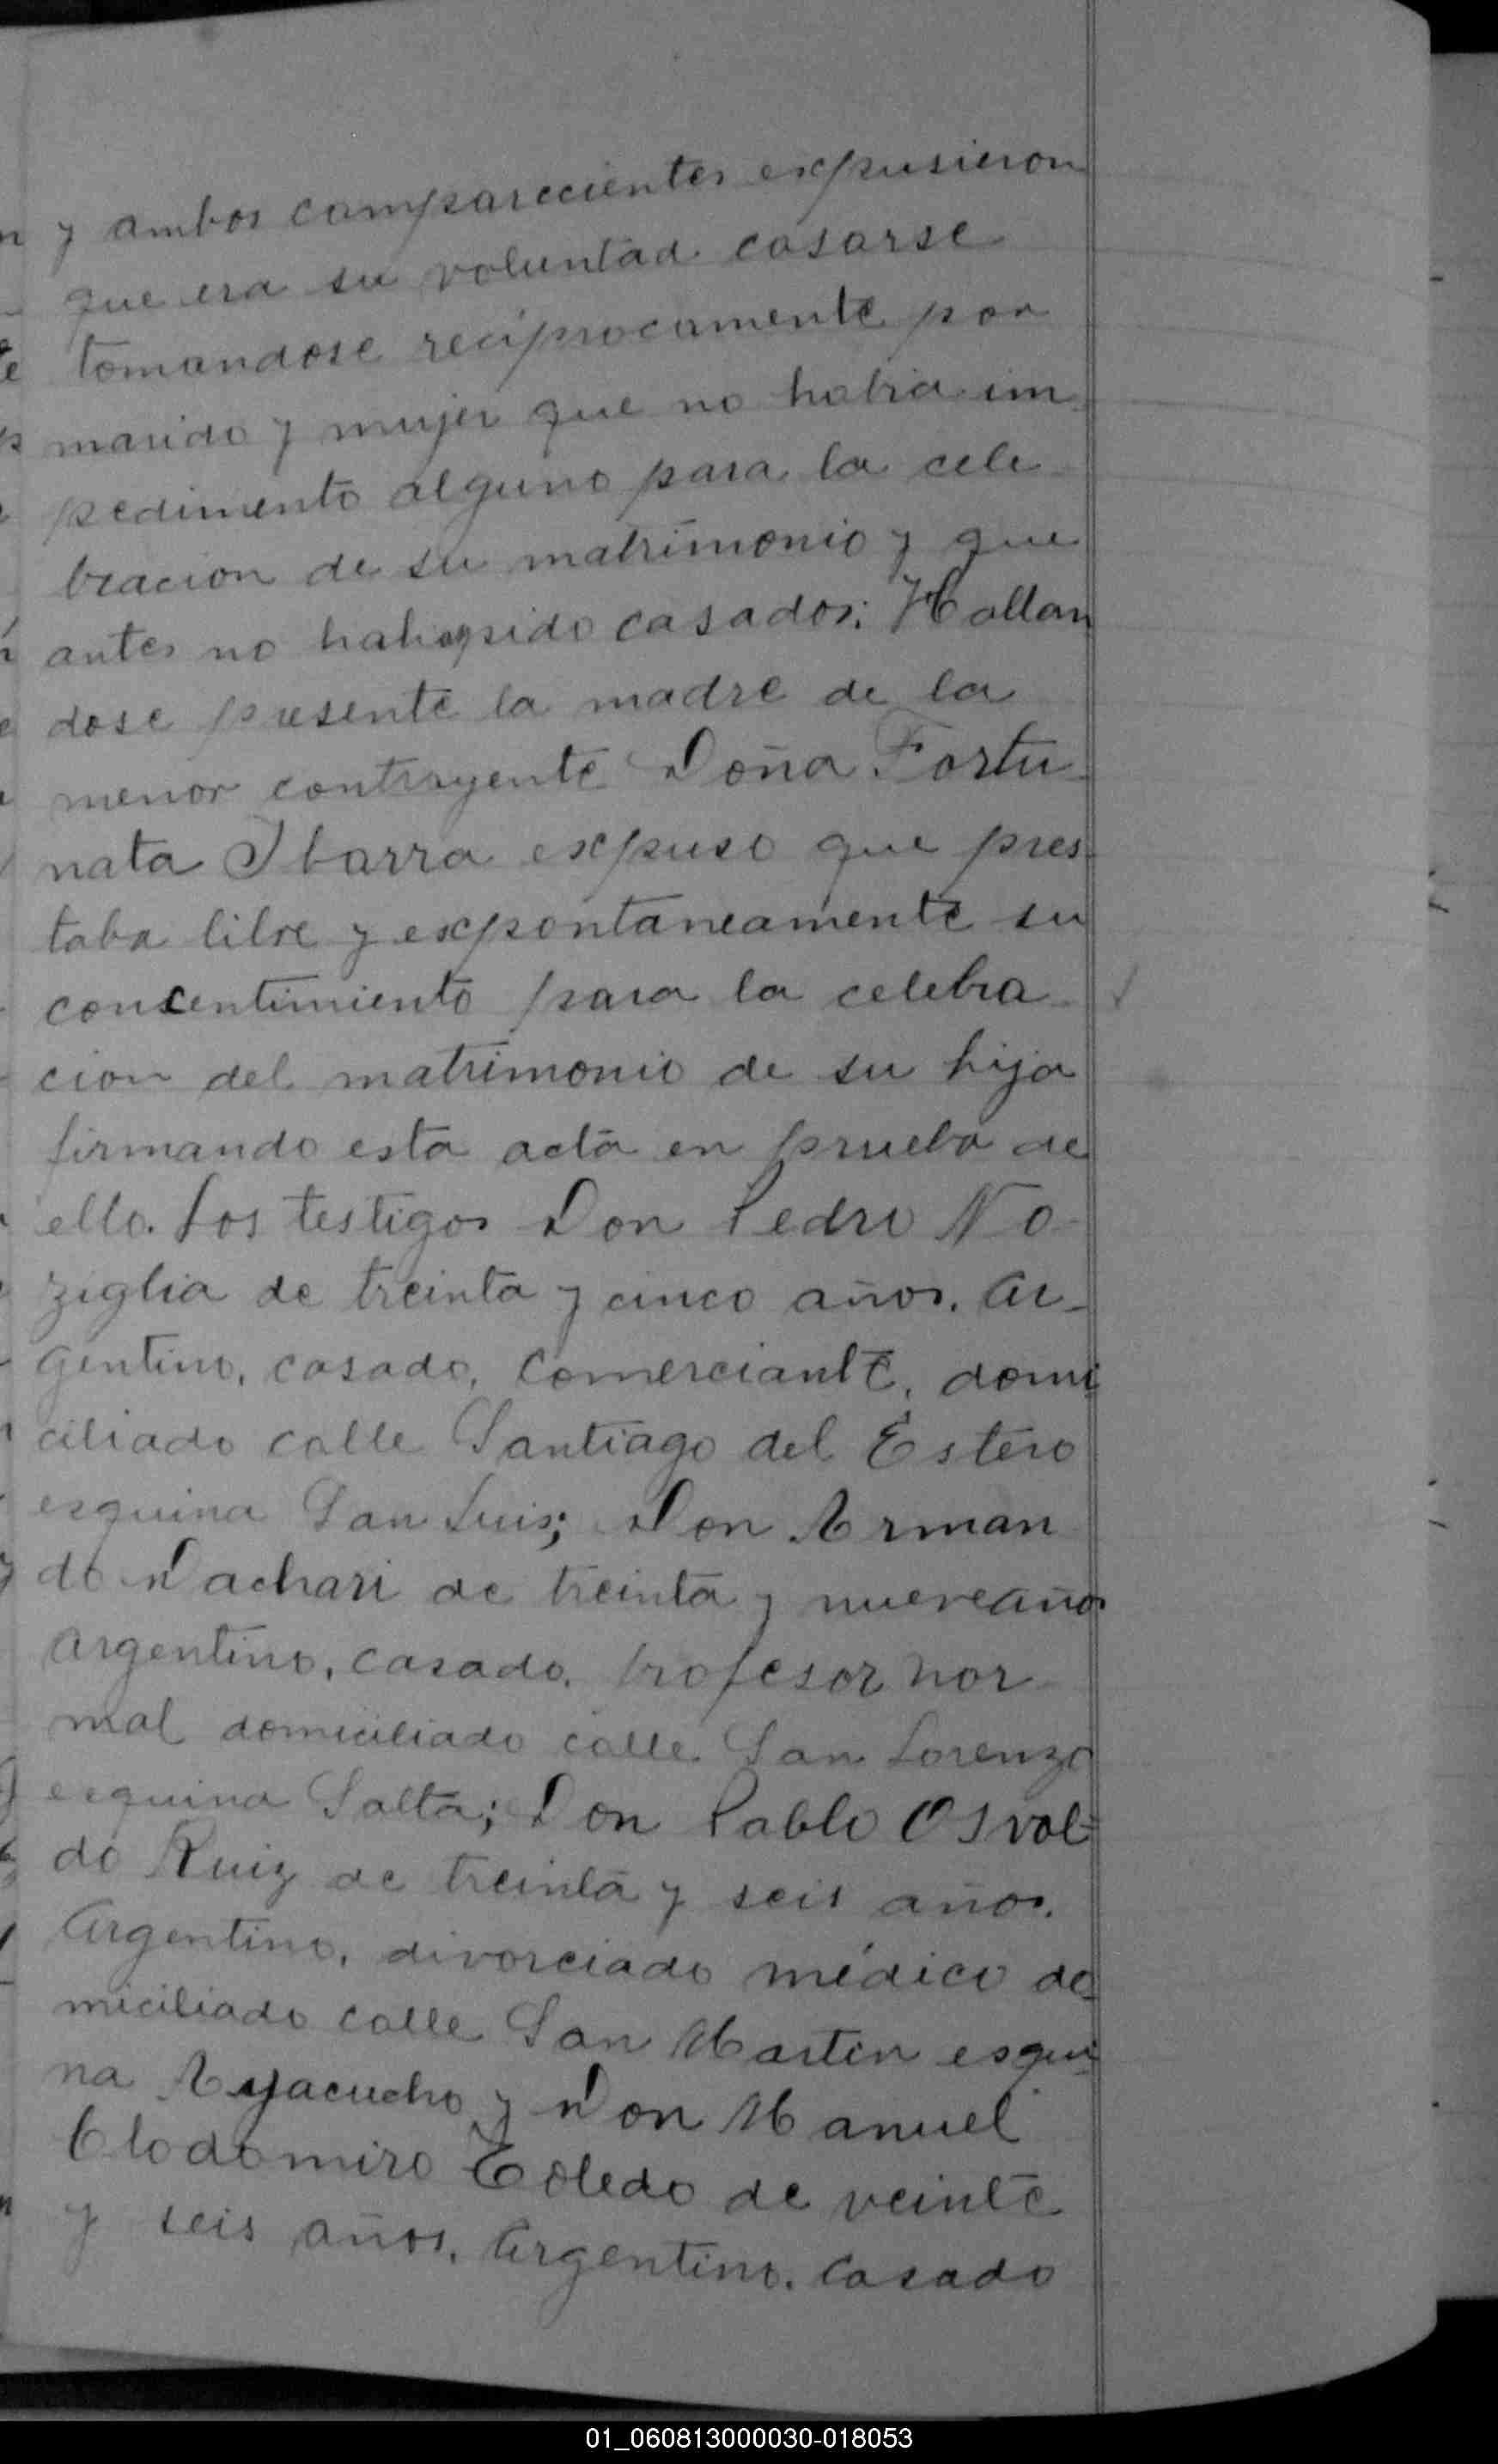 y ambos comparecientes expusieron
que era su voluntad casarse
tomandose reciprocamente por
marido y mujer que no habia im
pedimento alguno para la cele
bracion de su matrimonio y que
antes no habian sido casados; Hallan
dose presente la madre de la
menor contrayente Doña Fortu
nata Ibarra expuso que pres
taba libre y expontaneamente su
concentimiento para la celebra
cion del matrimonio de su hija
firmando esta acta en prueba de
ello. Los testigos Don Pedro No
ziglia de treinta y cinco años, Ar-
gentino, casado, Comerciante, domi
ciliado calle Santiago del Estero
esquina San Luis; Don Arman
do Dachari de treinta y nueve años
Argentino, casado, Profesor nor
mal domiciliado calle San Lorenzo
esquina Salta; Don Pablo Osval=
do Ruiz de treinta y seis años.
Argentino, divorciado médico do
miciliado calle San Martin esqui
na Ayacucho y Don Manuel
Clodomiro Toledo de veinte
y seis años. Argentino. Casado
01_060813000030-018053